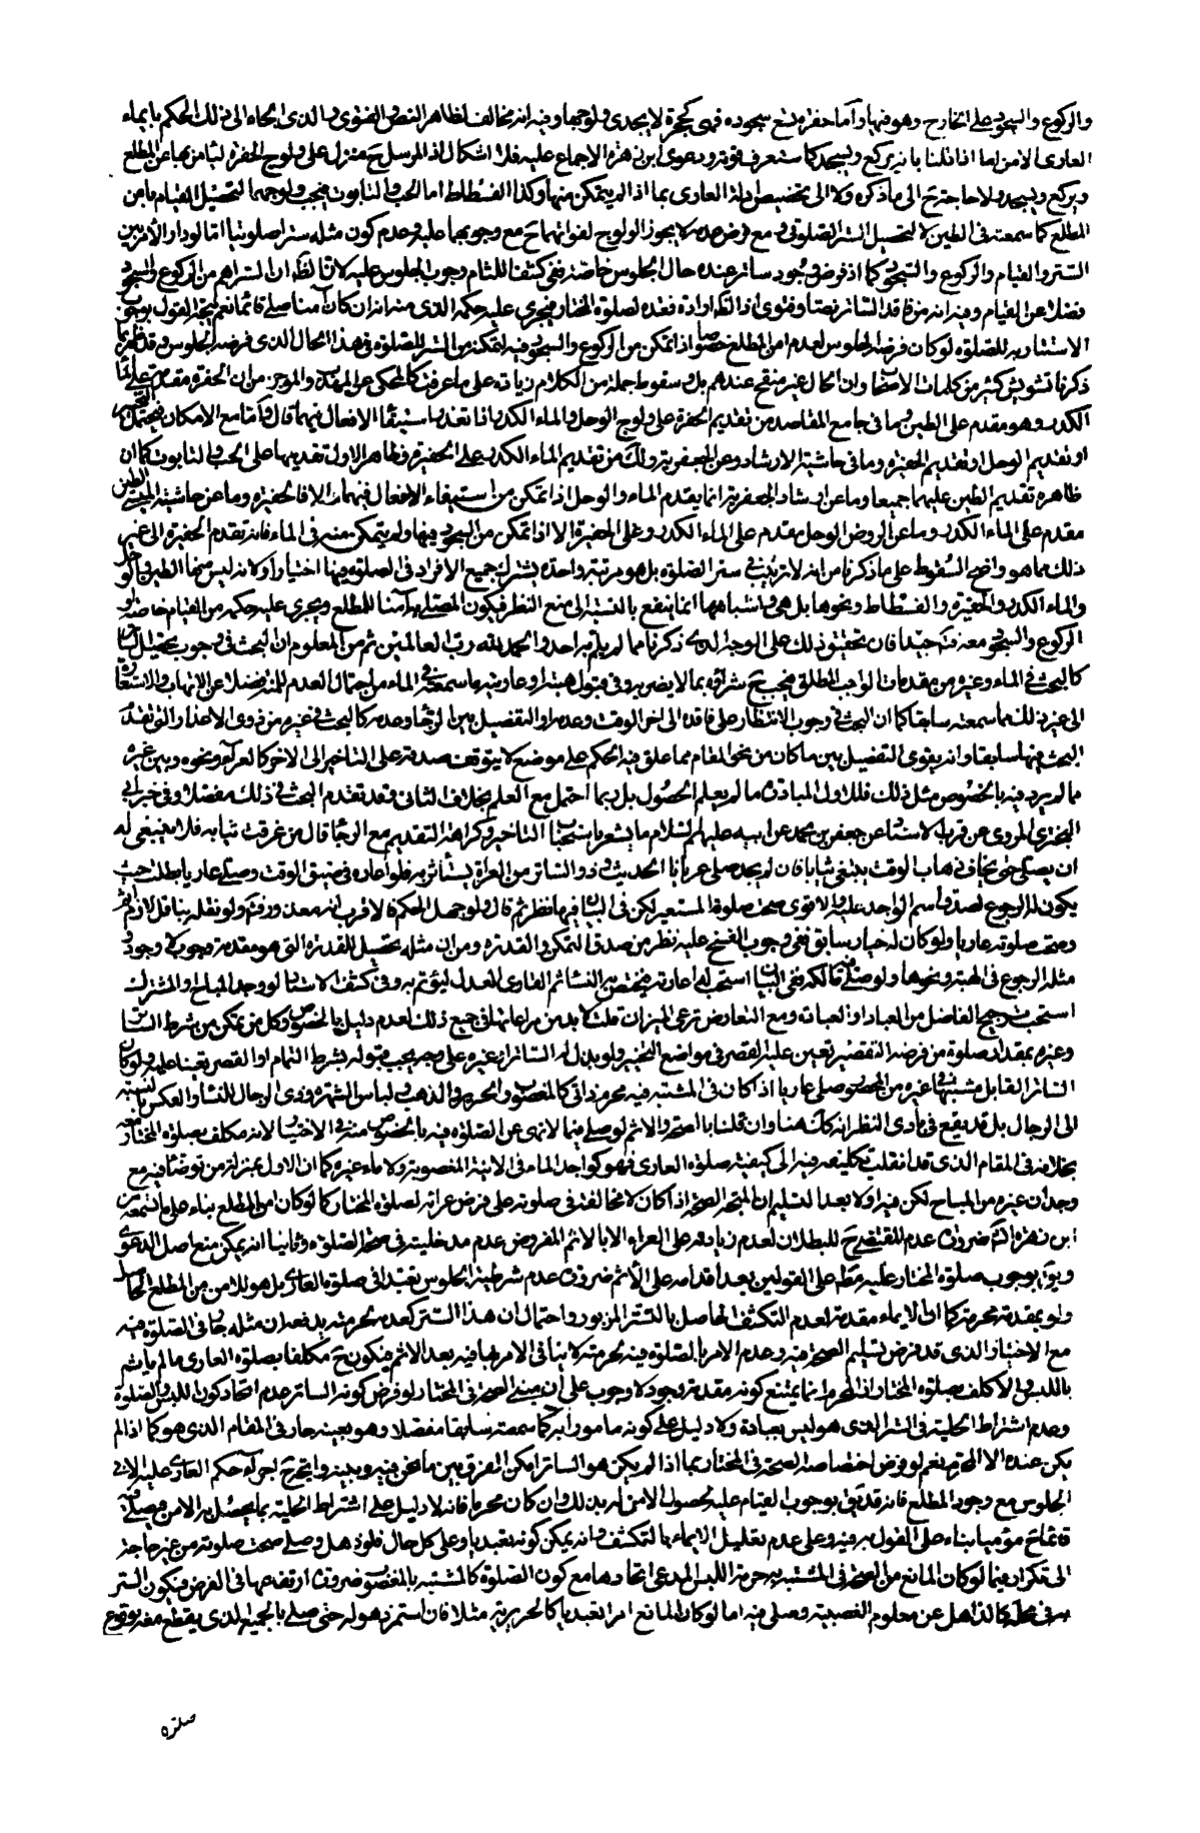 والركوع والسجود على الخارج وهو فيها وأما حفرة تسع سجوده فهي كحجرة لا يجدي ولوجها وفيه انه مخالف لظاهر النص والفتوى والذي الجاه الى ذلك الحكم بايماء
العاري الامن اما اذا قلنا بانه يركع ويسجد كما ستعرف قوته ودعوى ابن زهرة الاجماع عليه فلا اشكال اذ المرسل ح منزل على ولوج الحفرة ليامن بها عن المطلع
ويركع ويسجد ولا حاجة ح الى ما ذكره ولا الى تخصيص ادلة العاري بما اذا لم يتمكن منها وكذا الفسطاط اما الحب والتابوت فيجب ولوجهما لتحصيل القيام بامن
المطلع كما سمعته في الطين لا لتحصيل الستر الصلوتي ومع فرض عدمه لا يجوز الولوج لفواتهما ح مع وجوبهما عليه وعدم كون مثله ستر اصلوتيا اما لو دار الأمر بين
الستر والقيام والركوع والسجود كما اذ فرض وجود ساتر عنده حال الجلوس خاصة ففي كشف اللثام وجوب الجلوس عليه لانا الظه ان الستر اهم من الركوع والسجود
فضلا عن القيام وفيه انه من فاقد الساتر نصا وفتوى اذ الظه ارادة فقده لصلوة المختار فيجري عليه حكمه الذي منه انه ان كان آمنا صلى قائما نعم يتجه القول بوجوب
الاستتار به للصلوة لو كان فرضه الجلوس لعدم امن المطلع خصوصا اذا تمكن من الركوع والسجود فيه لتمكنه من الستر للصلوة في هذا الحال الذي فرضه الجلوس وقد ظهر مما
ذكرنا تشويش كثير من كلمات الاصحاب وان الحال غير منقح عندهم بل وسقوط جملة من الكلام زيادة على ما عرفت كالمحكي عن المهذب والموجز من ان الحفرة مقدمة على الماء
الكدر وهو مقدم على الطين وما في جامع المقاصد من تقديم الحفرة على ولوج الوحل والماء الكدر اذا تعذر استيفاء الافعال فيهما قال وأما مع الامكان فيحتمل التخيير
او تقديم الوحل او تقديم الحفيرة وما في حاشية الارشاد وعن الجعفرية ولك من تقديم الماء الكدر على الحفيرة وظاهر الاول تقديمها على الحب والتابوت كما ان
ظاهره تقديم الطين عليهما جميعا وما عن ارشاد الجعفرية انما يقدم الماء والوحل اذا تمكن من استيفاء الافعال فيهما والا فالحفيرة وما عن حاشية الميسي الطين
مقدم على الماء الكدر وما عن الروض الوحل مقدم على الماء الكدر وعلى الحفيرة الا اذا تمكن من السجود فيها ولم يتمكن منه في الماء فانه تقدم الحفيرة الى غير
ذلك مما هو واضح السقوط على ما ذكرنا من انه لا ترتيب في ستر الصلوة بل هو مرتبة واحدة يشترك جميع الافراد في الصلوة فيها اختيارا وكانه ليس منها الطين والوحل
والماء الكدر والحفيرة والفسطاط ونحوها بل هي واشباهها انما ينفع بالنسبة الى منع النظر فيكون المصلي بها آمنا للمطلع ويجري عليه حكمه من القيام خاصة او
الركوع والسجود معه فتامل جيدا فان تحقيق ذلك على الوجه الذي ذكرنا مما لم يلم به احد والحمد لله رب العالمين ثم من المعلوم ان البحث في وجوب تحصيل الساتر
كالبحث في الماء وغيره من مقدمات الواجب المطلق فيجب ح شراؤه بما لا يضر به وفي قبول هبته او عاريته ما سمعته في الماء من احتمال العدم للمنة فضلا عن الاتهاب والاستعارة
الى غير ذلك مما سمعته سابقا كما ان البحث في وجوب الانتظار على فاقده الى اخر الوقت وعدمه او التفصيل بين الرجاء وعدمه كالبحث في غيره من ذوي الاعذار التي تقدم
البحث فيها سابقا وانه يقوى التفصيل بين ما كان من نحو المقام مما علق فيه الحكم على موضع لا يتوقف صدقه على التاخير الى الاخر كالعراء ونحوه وبين غيره
ما لم يرد فيه بالخصوص مثل ذلك فللاول المبادرة ما لم يعلم الحصول بل ربما احتمل مع العلم بخلاف الثاني وقد تقدم البحث في ذلك مفصلا وفي خبر ابي
البختري المروي عن قرب الاسناد عن جعفر بن محمد عن ابيه عليهم السلام ما يشعر باستحباب التاخير وكراهة التقديم مع الرجاء قال من غرقت ثيابه فلا ينبغي له
ان يصلي حتى يخاف ذهاب الوقت يبتغي ثيابا فان لم يجد صلى عريانا الحديث وذو الساتر من العراة يستأثر به فلو اعاره في ضيق الوقت وصلى عاريا بطلت حيث
يكون له الرجوع لصدق اسم الواجد عليه والاقوى صحت صلوة المستعير لكن في البيان فيها نظر ثم قال ولو جهل الحكم فالاقرب انه معذور فتم ولو نقله بناقل لازم اثم
وصحت صلوته عاريا ولو كان له خيار سابق ففي وجوب الفسخ عليه نظر من صدق التمكن والقدرة ومن ان مثله تحصيل للقدرة التي هو مقدمة وجوب لا وجود
مثله الرجوع في الهبة ونحوها ولو صلى فيه قال كه ففي البيان استحب له اعارته فيختص به النساء ثم القاري العدل ليؤتم به وفي كشف الاستاد لو وجد المباح والمشترك
استحب ترجيح الفاضل من العباد او العبادة ومع التعارض ترعى الميزان قلت لا بد من مراعاتها في جميع ذلك لعدم دليل بالخصوص وكل من تمكن من شرط الساتر
وغيره بمقدار صلوة من فرضه التقصير تعين عليه القصر في مواضع التخيير ولو بذل له الساتر او غيره على وجه يجب قبوله بشرط التمام او القصر تعينا عليه ولو كان
الساتر القابل مشتبها في غيره من المحصور صلى عاريا اذا كان في المشتبه فيه محرم ذاتي كالمغصوب والحرير والذهب ولباس الشهرة وزي الرجال للنساء والعكس بالنسبة
الى الرجال بل قد يقع في بادي النظر انه كك هنا وان قلنا باالصحة والاثم لو صلى فيما لا نهي عن الصلوة فيه بالخصوص منه في الاختيار لانه مكلف بصلوة المختار معه
بخلافه في المقام الذي قد انقلب تكليفه فيه الى كيفية صلوة العاري فهو كواجد الماء في الانية المغصوبة ولا ماء غيره كما ان الاول بمنزلة من توضأ فيه مع
وجدان غيره من المباح لكن فيه اولا بعد التسليم ان المتجه الصحة اذا كان لا مخالفة في صلوته على فرض عراه لصلوة المختار كما لو كان امن المطلع بناء على ما تسمعه من
ابن زهرة اذ ضرورة عدم المقتضي ح للبطلان لعدم زيادته على العراء الا بالاثم المفروض عدم مدخليته في صحة الصلوة وثانيا انه يمكن منع اصل الدعوى
ويق بوجوب صلوة المختار عليه مط على القولين بعد اقدامه على الاثم ضرورة عدم شرطية الجلوس تعبدا في صلوة العاري بل هو للامن من المطلع الحاصل
ولو بمقدمة محرمة كما ان الايماء مقدمة لعدم التكشف الحاصل بالتستر المزبور واحتمال ان هذا الستر كعدمه لحرمته يدفعه ان مثله جار في الصلوة فيه
مع الاختيار والذي قد فرض تسليم الصحة فيه وعدم الامر بالصلوة فيه لحرمته لا ينافي الامر بها فيه بعد الاثم فيكون ح مكلفا بصلوة العاري ما لم ياثم
باللبس والا كلف بصلوة المختار اذ المحرم انما يمتنع كونه مقدمة وجود لا وجوب على ان مبنى الصحة في المختار لو فرض كونه الساتر عدم اتحاد كون اللبس والصلوة
وعدم اشتراط الحلية في الستر الذي هو ليس بعبادة ولا دليل على كونه مامورا به كما سمعته سابقا مفصلا وهو بعينه جار في المقام الذي هو كما اذا لم
يكن عنده الا المحرم نعم لو فرض اختصاصه الصحة في المختار بما اذا لم يكن هو الساتر امكن الفرق بين ما نحن فيه وبينه واتجه ح اجراء حكم العاري عليه الا في
الجلوس مع وجود المطلع فانه قد يق بوجوب القيام عليه لحصول الامن له بذلك وان كان محرما فانه لا دليل على اشتراط الحلية بما يحصل به الامن فيصلي فيه
قائما ح مؤميا بناء على القول به فيه وعلى عدم تعليل الايماء بالتكشف وانه يمكن كونه تعبديا وعلى كل حال فلو ذهل وصلى صحت صلوته من غير حاجة
الى تكرار فيما لو كان المانع من الصحة في المشتبه به حرمة اللبس المدعى اتحادها مع كون الصلوة كالمشتبه بالمغصوب ضرورة ارتفاعها في الفرض فيكون الستر
في محله كالذاهل عن معلوم الغصبية وصلى فيه اما لو كان المانع امرا تعبديا كالحريرية مثلا فان استمر ذهوله حتى صلى بالجميع الذي يقطع معه بوقوع
صلوة